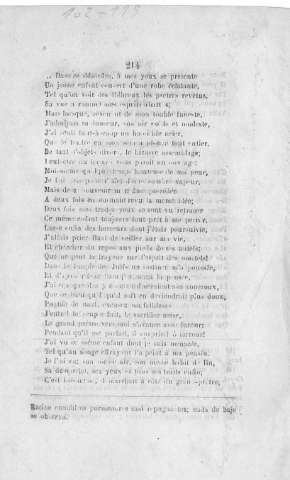 102-115
214
Dans ce désordre, à mes yeux se présente
Un jeune enfant couvert d'une robe éclatante,
Tel qu'on voit des Hébreux les prêtres revêtus.
Sa vue a ranimé mes esprits
Mais lorsque, de mon trouble funeste,
J'admirais sa douceur, son air et modeste,
J'ai senti tout-à-coup un homicide acier,
Que le traître en mon sein a plongé tout entier.
De tant d'objets divers le bizarre assemblage
Peut-être du hasard vous paraît un ouvrage:
Moi-même quelque temps honteuse de ma peur,
Je l'ai pris pour d'une sombre vapeur.
Mais de ce souvenir mon âme possédée
A deux fois en dormant revu la même idée;
Deux fois mes tristes yeux se sont vu retracer
Ce même enfant toujours tout prêt à me percer.
Lasse enfin des horreurs dont j'étais poursuivie,
J'allais prier Baal de veiller sur ma vie,
Et chercher du repos aux pieds de ses autels:
Que ne peut la frayeur sur l'esprit des mortels!
Dans le temple des Juifs un instinct m'a poussée,
Et d'apaiser leur Dieu j'ai conçu la pensée.
J'ai cru que des présents
Que ce Dieu, quel qu'il soit en deviendrait plus doux.
Pontife de Baal, excusez ma faiblesse.
J'entre: le peuple fuit, le sacrifice cesse,
Le grand prêtre vers moi s'avance avec fureur:
Pendant qu'il me parlait, ô surprise! ô terreur!
J'ai vu ce même enfant dont je suis menacée,
Tel qu'un songe effrayant l'a peint à ma pensée.
Je l'ai vu: son même air, son même habit de lin,
Sa démarche, ses yeux et tous ses traits enfin;
C'est lui-même. Il marchait à côté du grand-prêtre,
Racine
se observa.